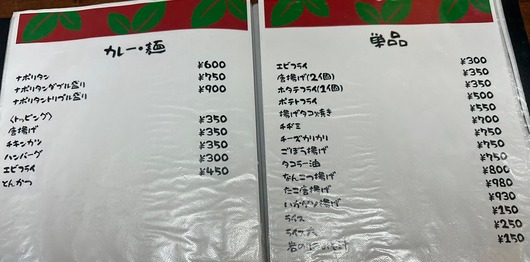 カレー・麺
ナポリタン ¥600
ナポリタンダブル盛り ¥750
ナポリタントリプル盛り ¥900
<トッピング>
唐揚げ ¥350
チキンカツ ¥350
ハンバーグ ¥350
エビフライ ¥300
とんかつ ¥450
単品
エビフライ ¥300
唐揚げ(2個) ¥350
ホタテフライ(2個) ¥350
ポテトフライ ¥500
揚げタコ焼き ¥550
チヂミ ¥700
チーズカリカリ ¥750
ごぼう揚げ ¥750
タコラー油 ¥750
なんこつ揚げ ¥800
たこ唐揚げ ¥980
いかゲソ揚げ ¥930
ライス ¥150
ライス大 ¥250
岩のりみそ汁 ¥150